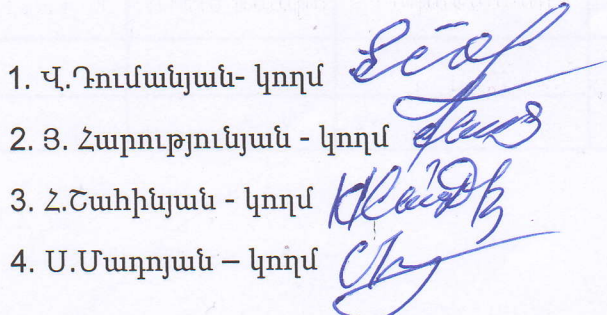 1. Վ.Դումանյան- կողմ
2. Յ. Հարությունյան - կողմ
3. Հ.Շահինյան - կողմ
4. Ս.Մադոյան – կողմ